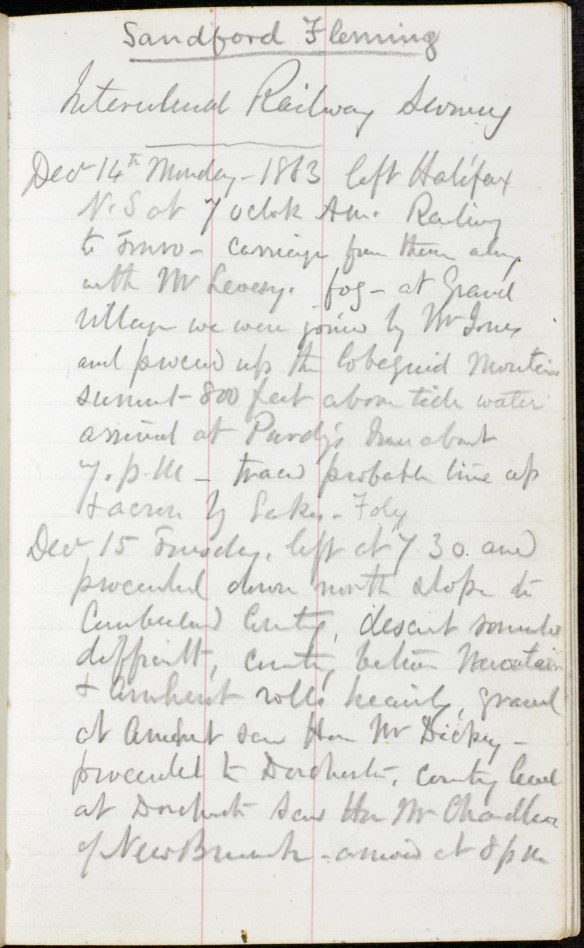 Sandford Fleming
Intercolonial Railway Survey
Dec 14th Monday - 1863 left Halifax
N.S at 7 oclok AM. Railway
to Truro - carriage from there along
with Mr Livesy. fog - at Grand
village we were joined by Mr Jones
and proceed up the Cobequid Mountain
summit 800 feet above tide water
arrived at Purdy's Inn about
7. p.M - traced probable line up
+ across by Lake - Foly
Dec 15 Tuesday, left at 7 30. and
proceeded down north slope to
Cumberland County, descent somewhat
difficult, country between Mountain
+ Amherst rolls heavily, gravel
at Amherst saw Hon Mr Dickey -
proceeded to Dorchester, country level
at Dorchester saw Hon Mr Chandler
of New Brunswick - arrived at 8 pm